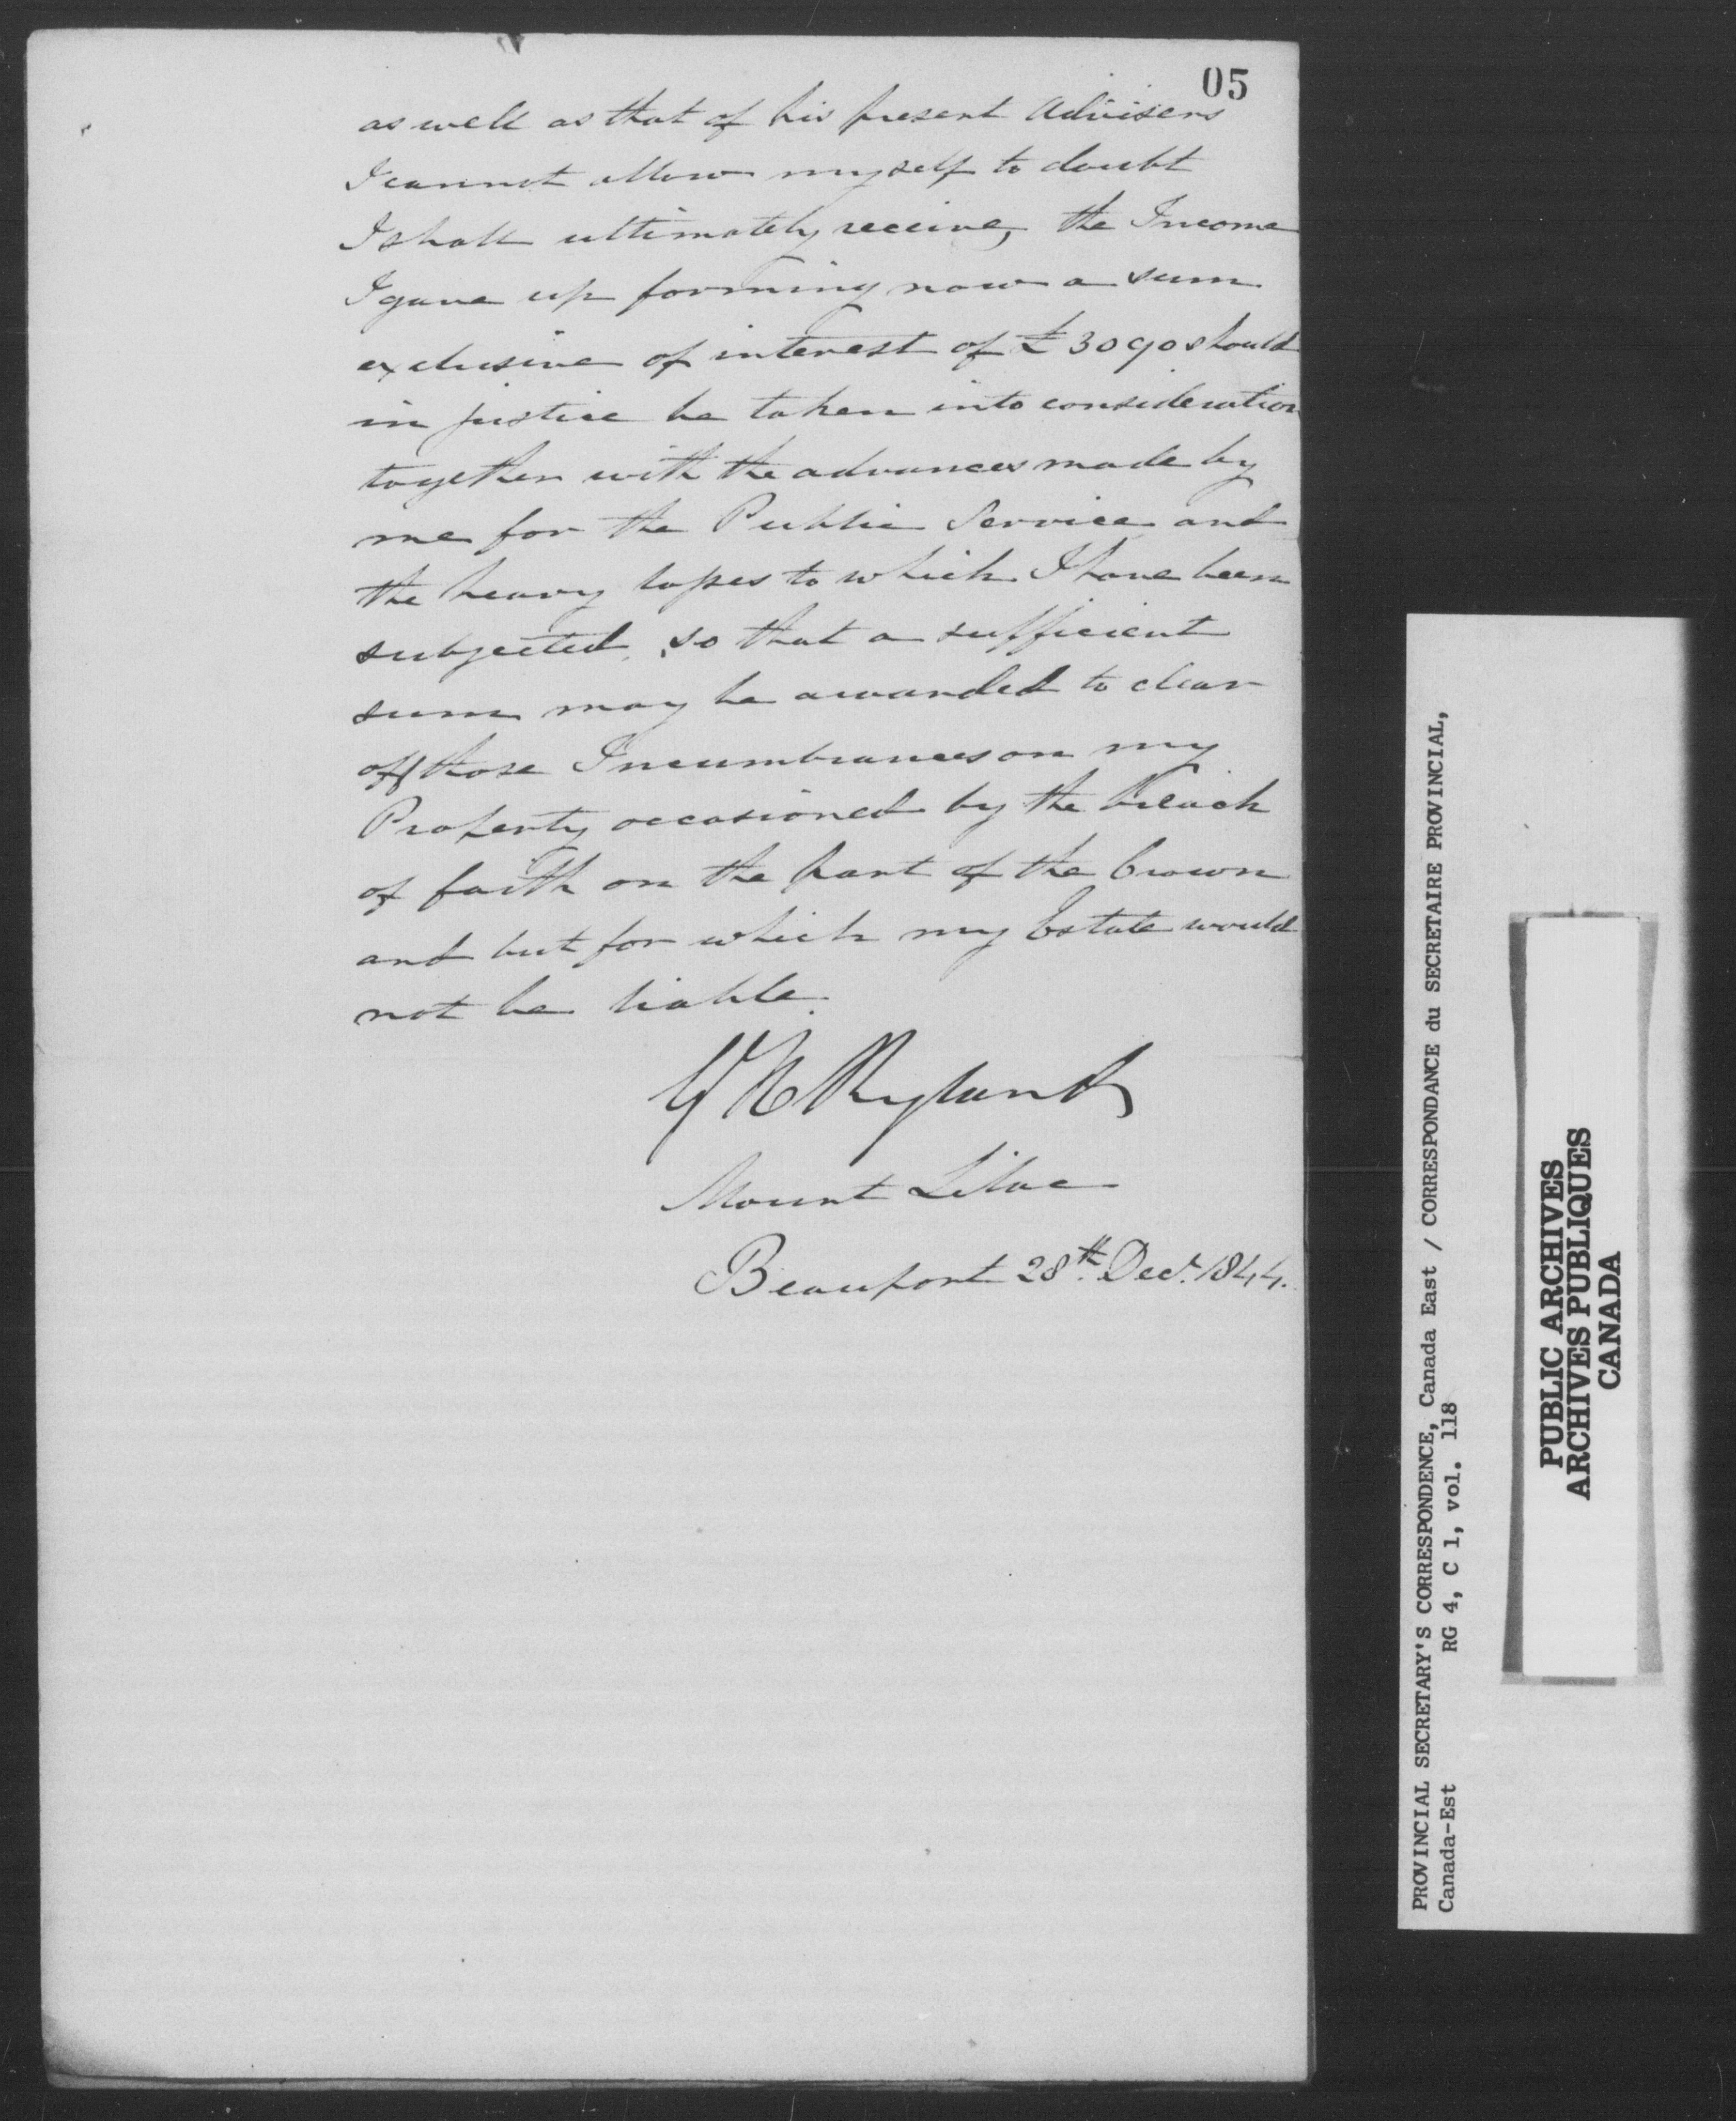 05
as well as that of his present Advisers
I cannot allow myself to doubt
I shall ultimately receive, the Income
I gave up forming now a sum
exclusive of interest of £3090 should
in justice be taken into consideration
together with the advances made by
me for the Public Service and
the heavy losses to which I have been
subjected, so that a sufficient
sum may be awarded to clear
off those Incumbrances on my
Property occasioned by the breach
of faith on the part of the Crown
and but for which my Estate would
not be liable.
G H Ryland
Mount Lilac
Beauport 28th. Decr. 1844.
PROVINCIAL SECRETARY'S CORRESPONDENCE, Canada East / CORRESPONDANCE du SECRETAIRE PROVINCIAL,
Canada-Est RG 4, C 1, vol. 118
PUBLIC ARCHIVES
ARCHIVES PUBLIQUES
CANADA